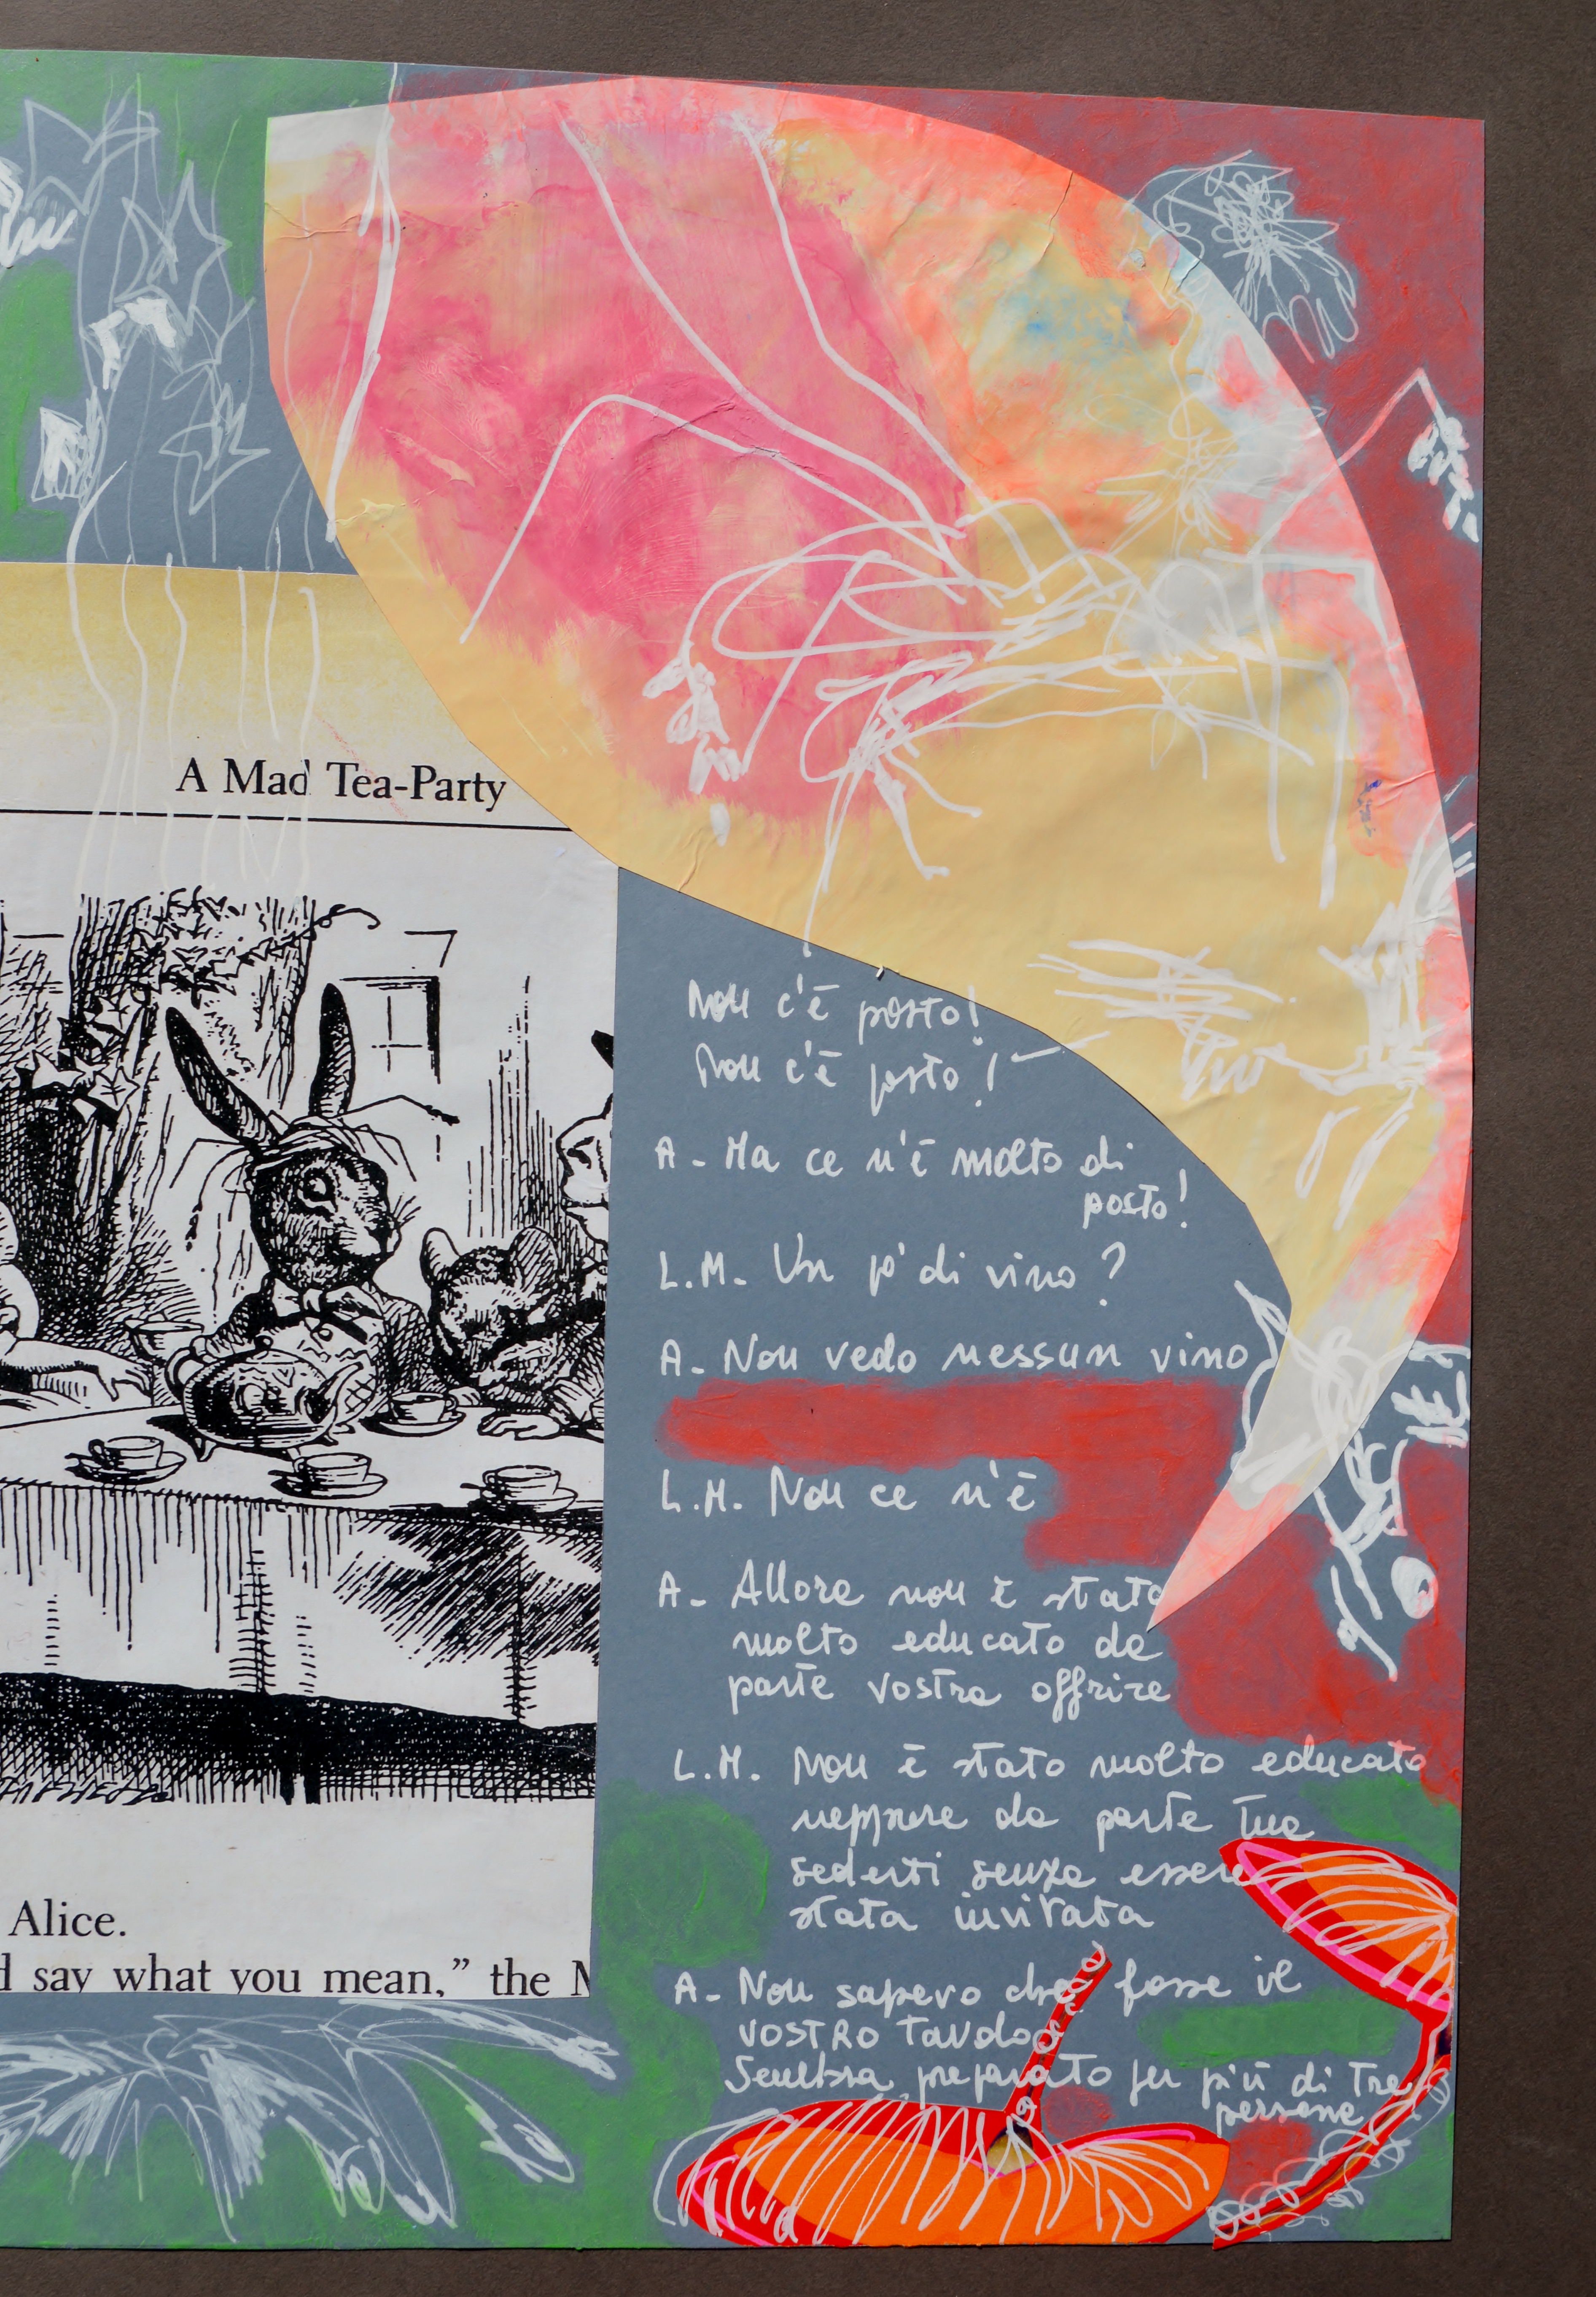 A Mad Tea-Party
Alice.
d say what you mean,” the M
Non c'è posto!
Non c'è posto! -
A - Ma ce n'è molto di
posto!
L.M. - Un po' di vino?
A - Non vedo nessun vino
L.M. Non ce n'è
A - Allora non è stato
molto educato da
parte vostra offrire
L.M. Non è stato molto educato
neppure da parte tua
sederti senza essere
stata invitata
A - Non sapevo che fosse il
VOSTRO TAVOLO
Sembra preparato per più di tre
persone